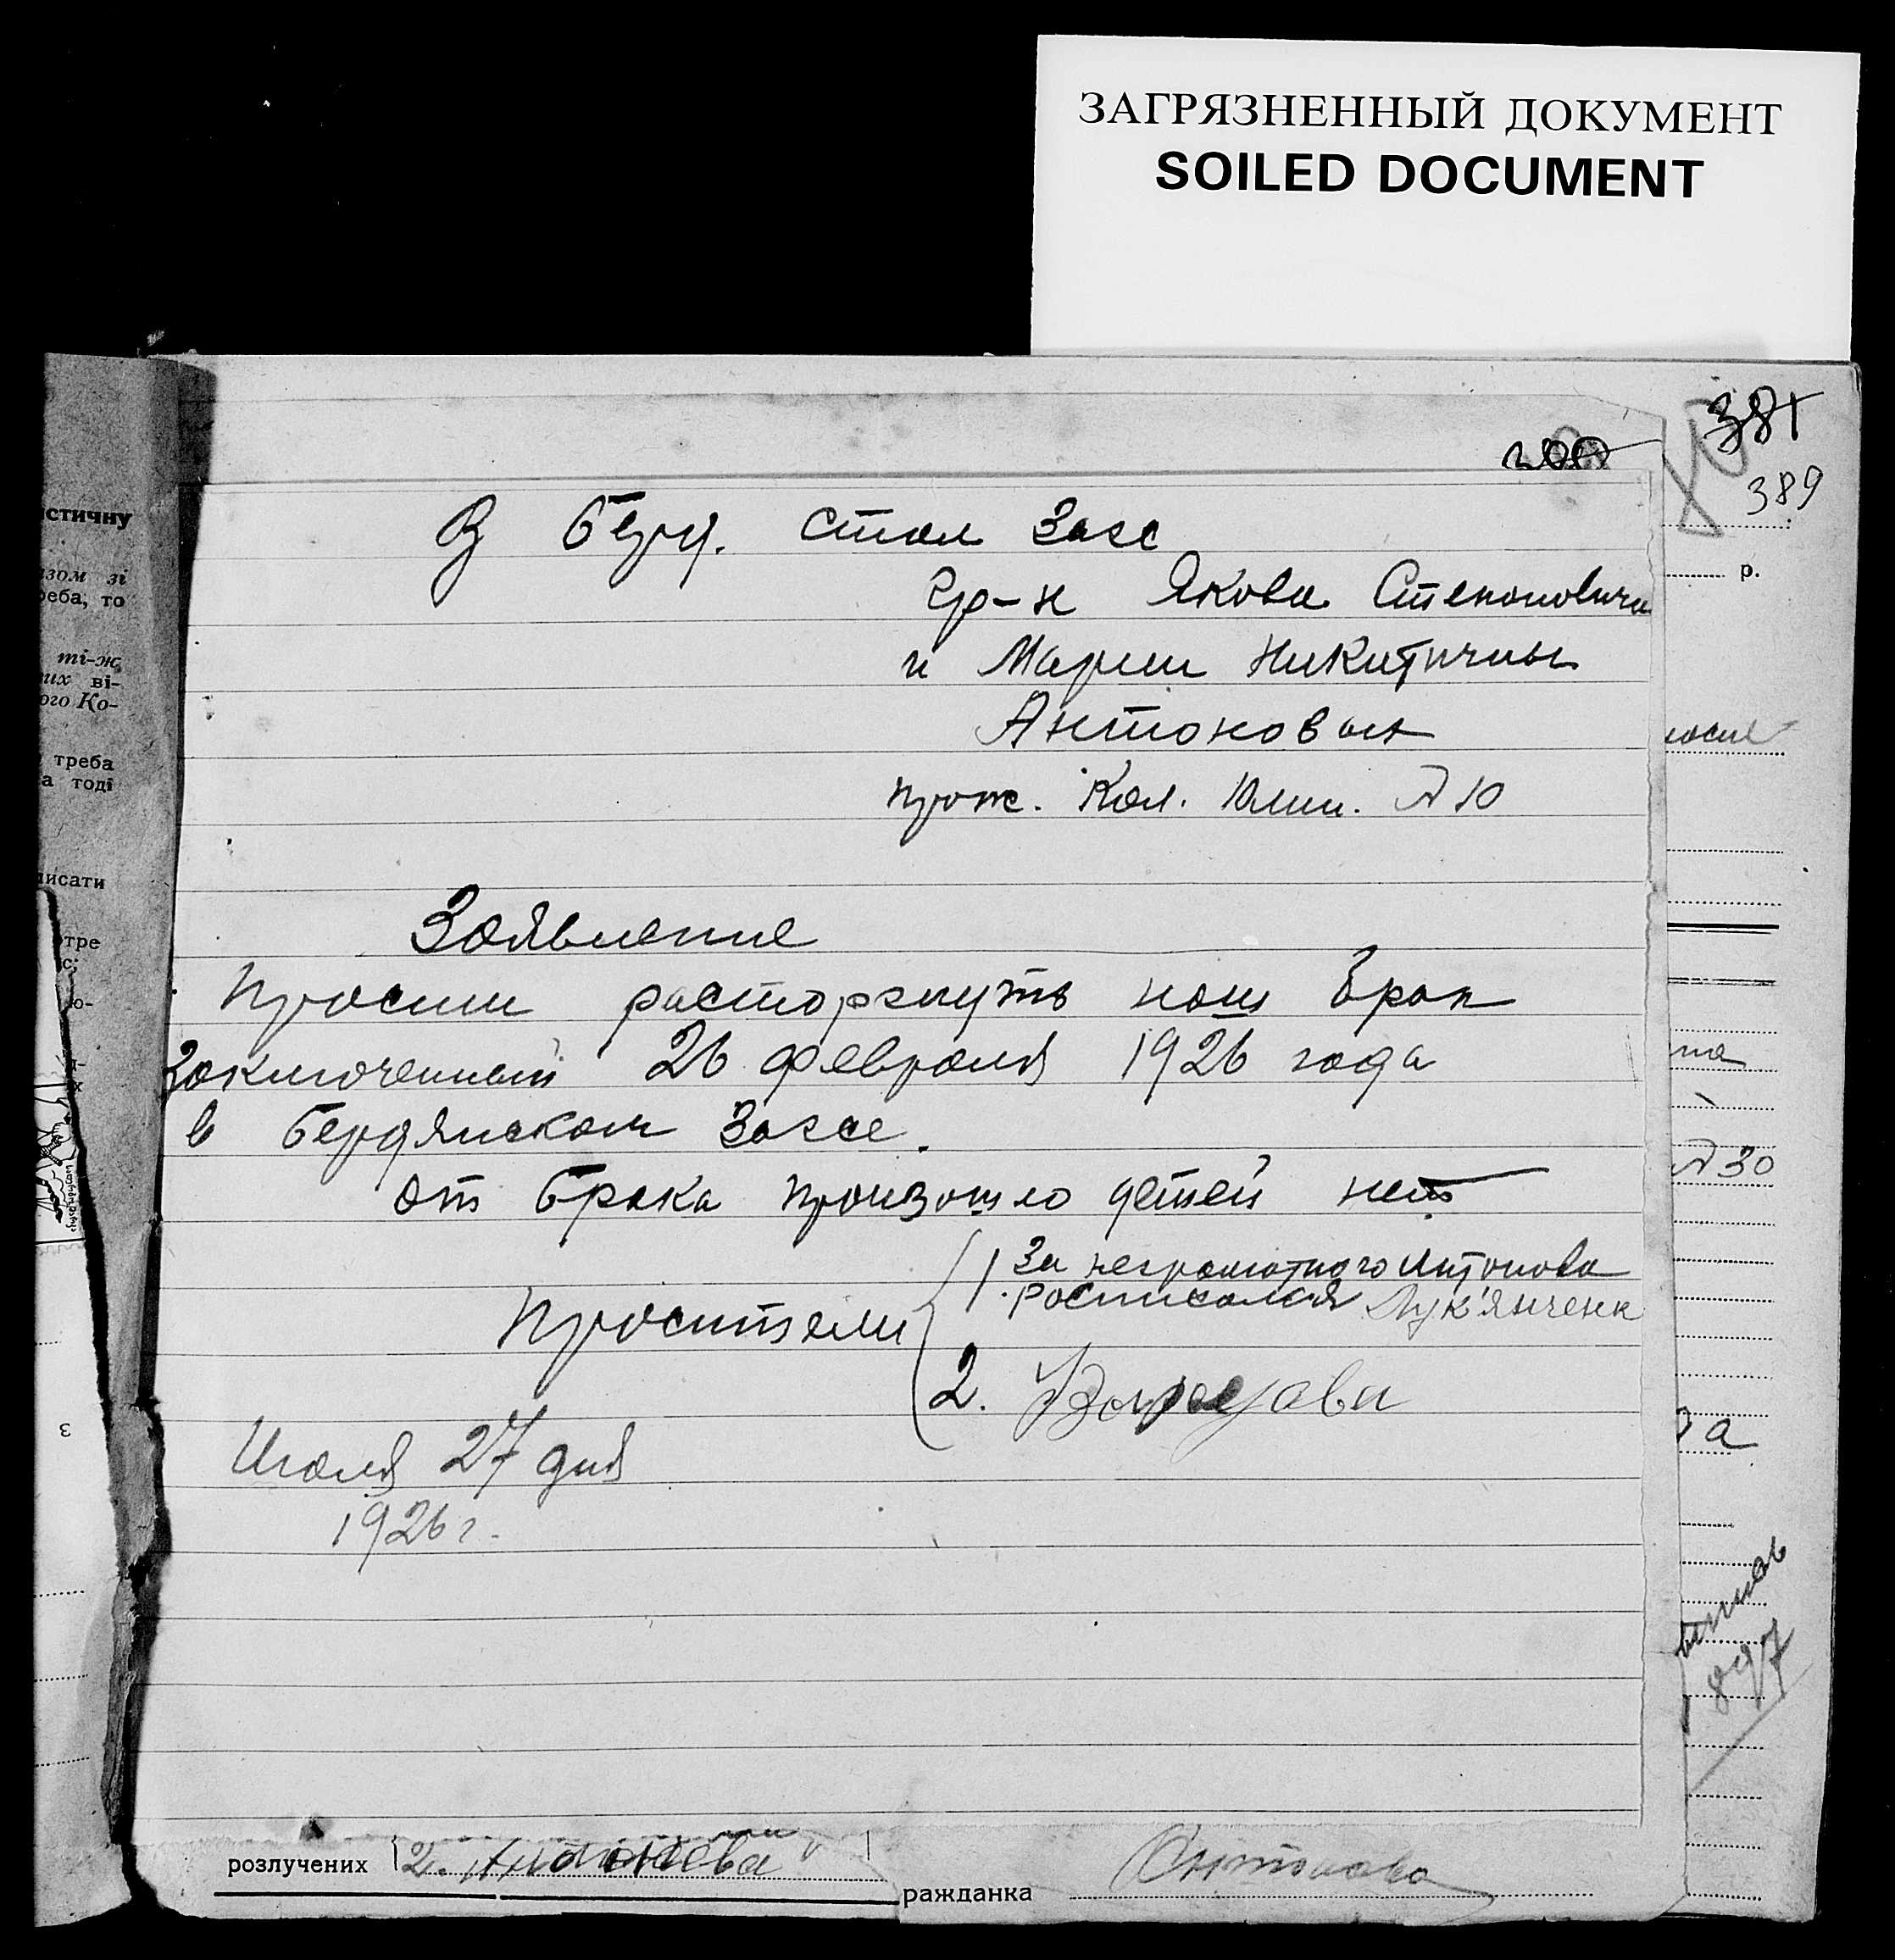 ЗАГРЯЗНЕННЫЙ ДОКУМЕНТ
SOILED DOCUMENT
381
389
200
В Берд. Стол Загс
Гр-н Якова Степановича
и Марии Никитичны
Антоновых
прож. Кол. № 10
Заявление
Просим расторгнуть наш брак
заключенный 26 февраля 1926 года
в Бердянском Загсе.
От брака произошло детей нет
Просители
1. За неграмотного Антонова
росписался Лук'янченк
2.
Июля 27 дня
1926 г.
стичну
зом зі
реба, то
ті-ж
их ві-
ого Ко-
треба
а тоді
писати
отре
с;
ю-
р.
№ 30
897
розлучених 2.
ражданка Антонова